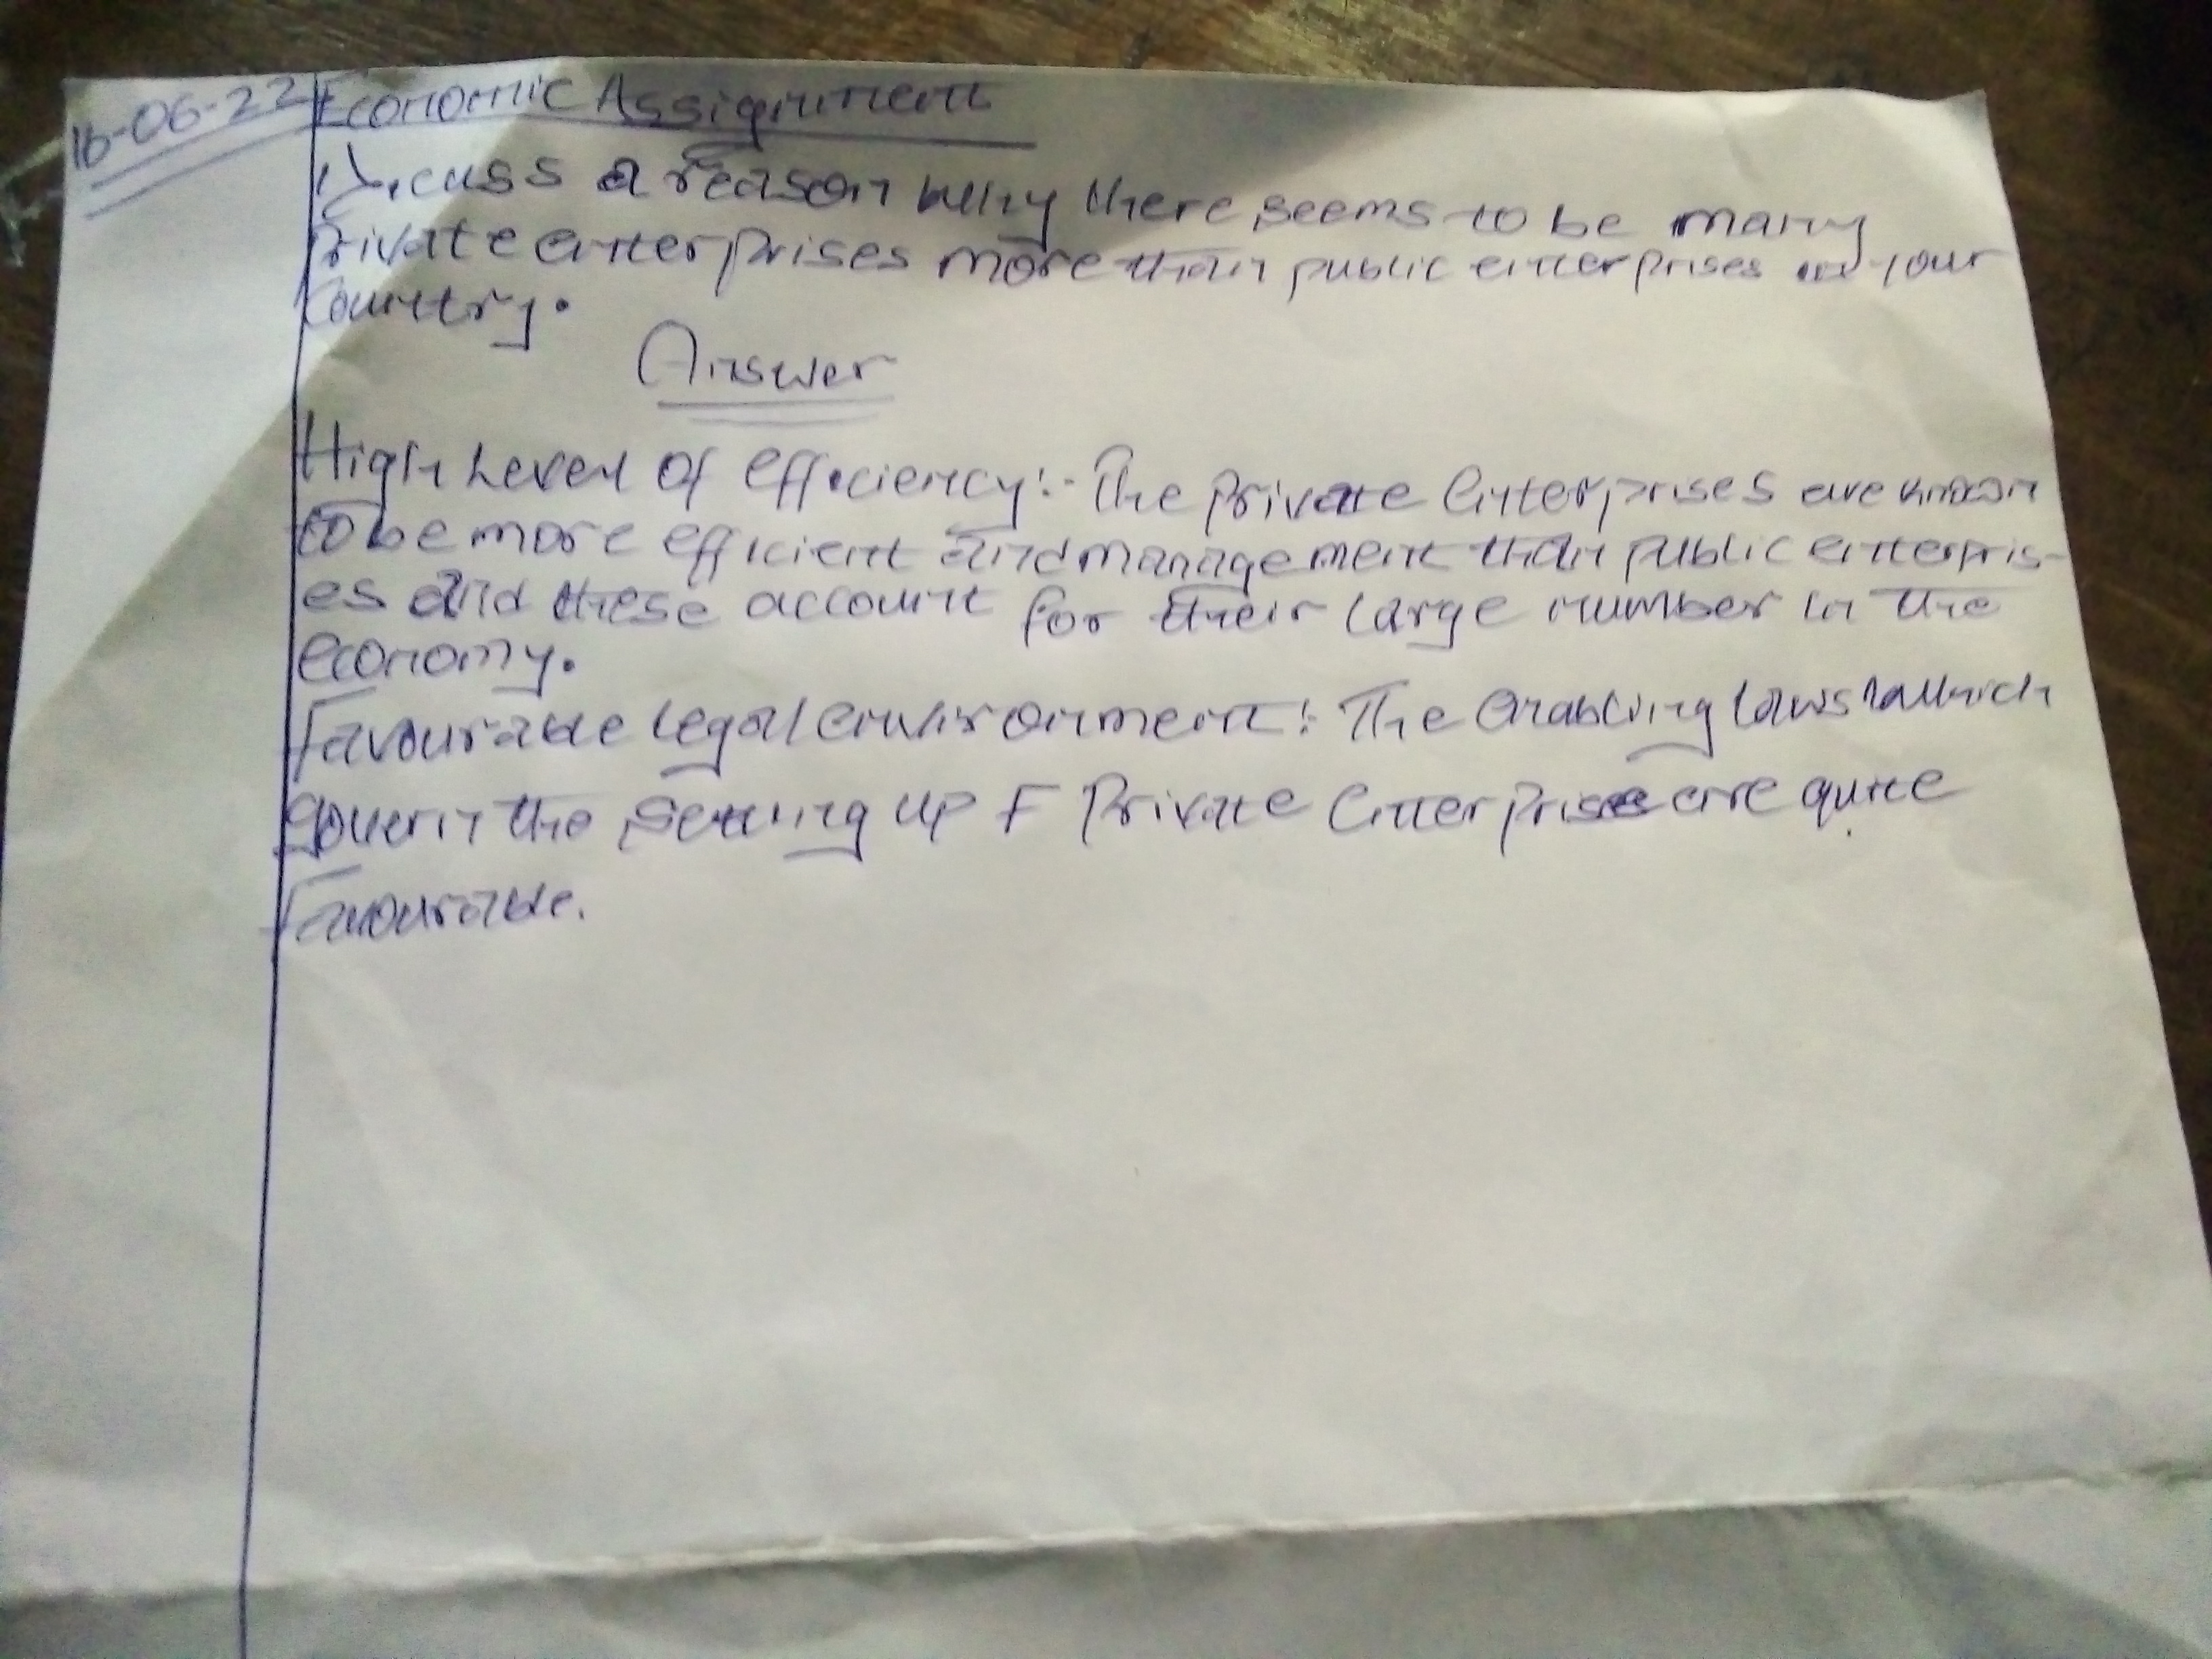 16-06-22 Economic Assignment
Discuss a reason why there seems to be many
Private enterprises more than public enterprises in your
Country.
Answer
High Level of efficiency:- The Private Enterprises are known
to be more efficient and management than public enterpris-
es and these account for their large number in the
economy.
Favourable legal environment: The enabling laws which
govern the setting up F Private Enterprise are quite
Favourable.